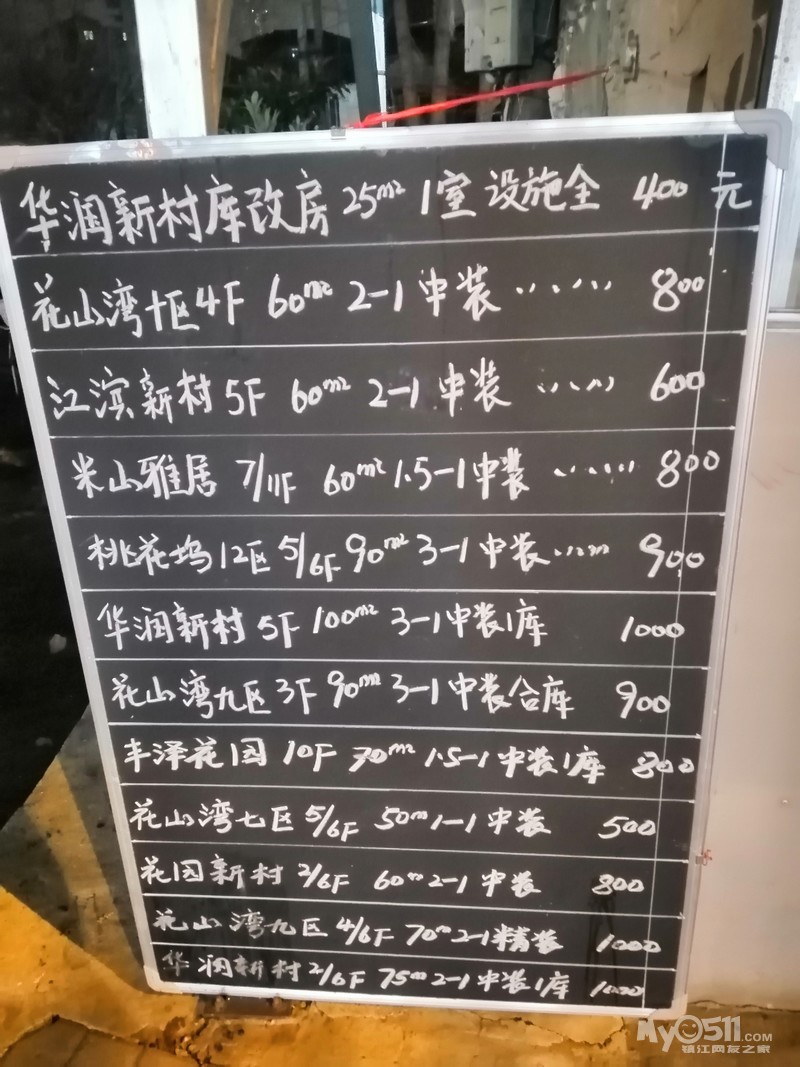 华润新村库改房 25m² 1室 设施全 400元
花山湾十区4F 60m² 2-1 中装 ...... 800
江滨新村 5F 60m² 2-1 中装 ...... 600
米山雅居 7/11F 60m² 1.5-1 中装 ...... 800
桃花坞12区 5/6F 90m² 3-1 中装 ...... 900
华润新村 5F 100m² 3-1中装1库 1000
花山湾九区 3F 90m² 3-1中装合库 900
丰泽花园 10F 70m² 1.5-1 中装1库 800
花山湾七区 5/6F 50m 1-1 中装 500
花园新村 2/6F 60m 2-1 中装 800
花山湾九区 4/6F 70m 2-1精装 1000
华润新村 2/6F 75m 2-1中装1库 1000
My0511.COM
镇江网友之家